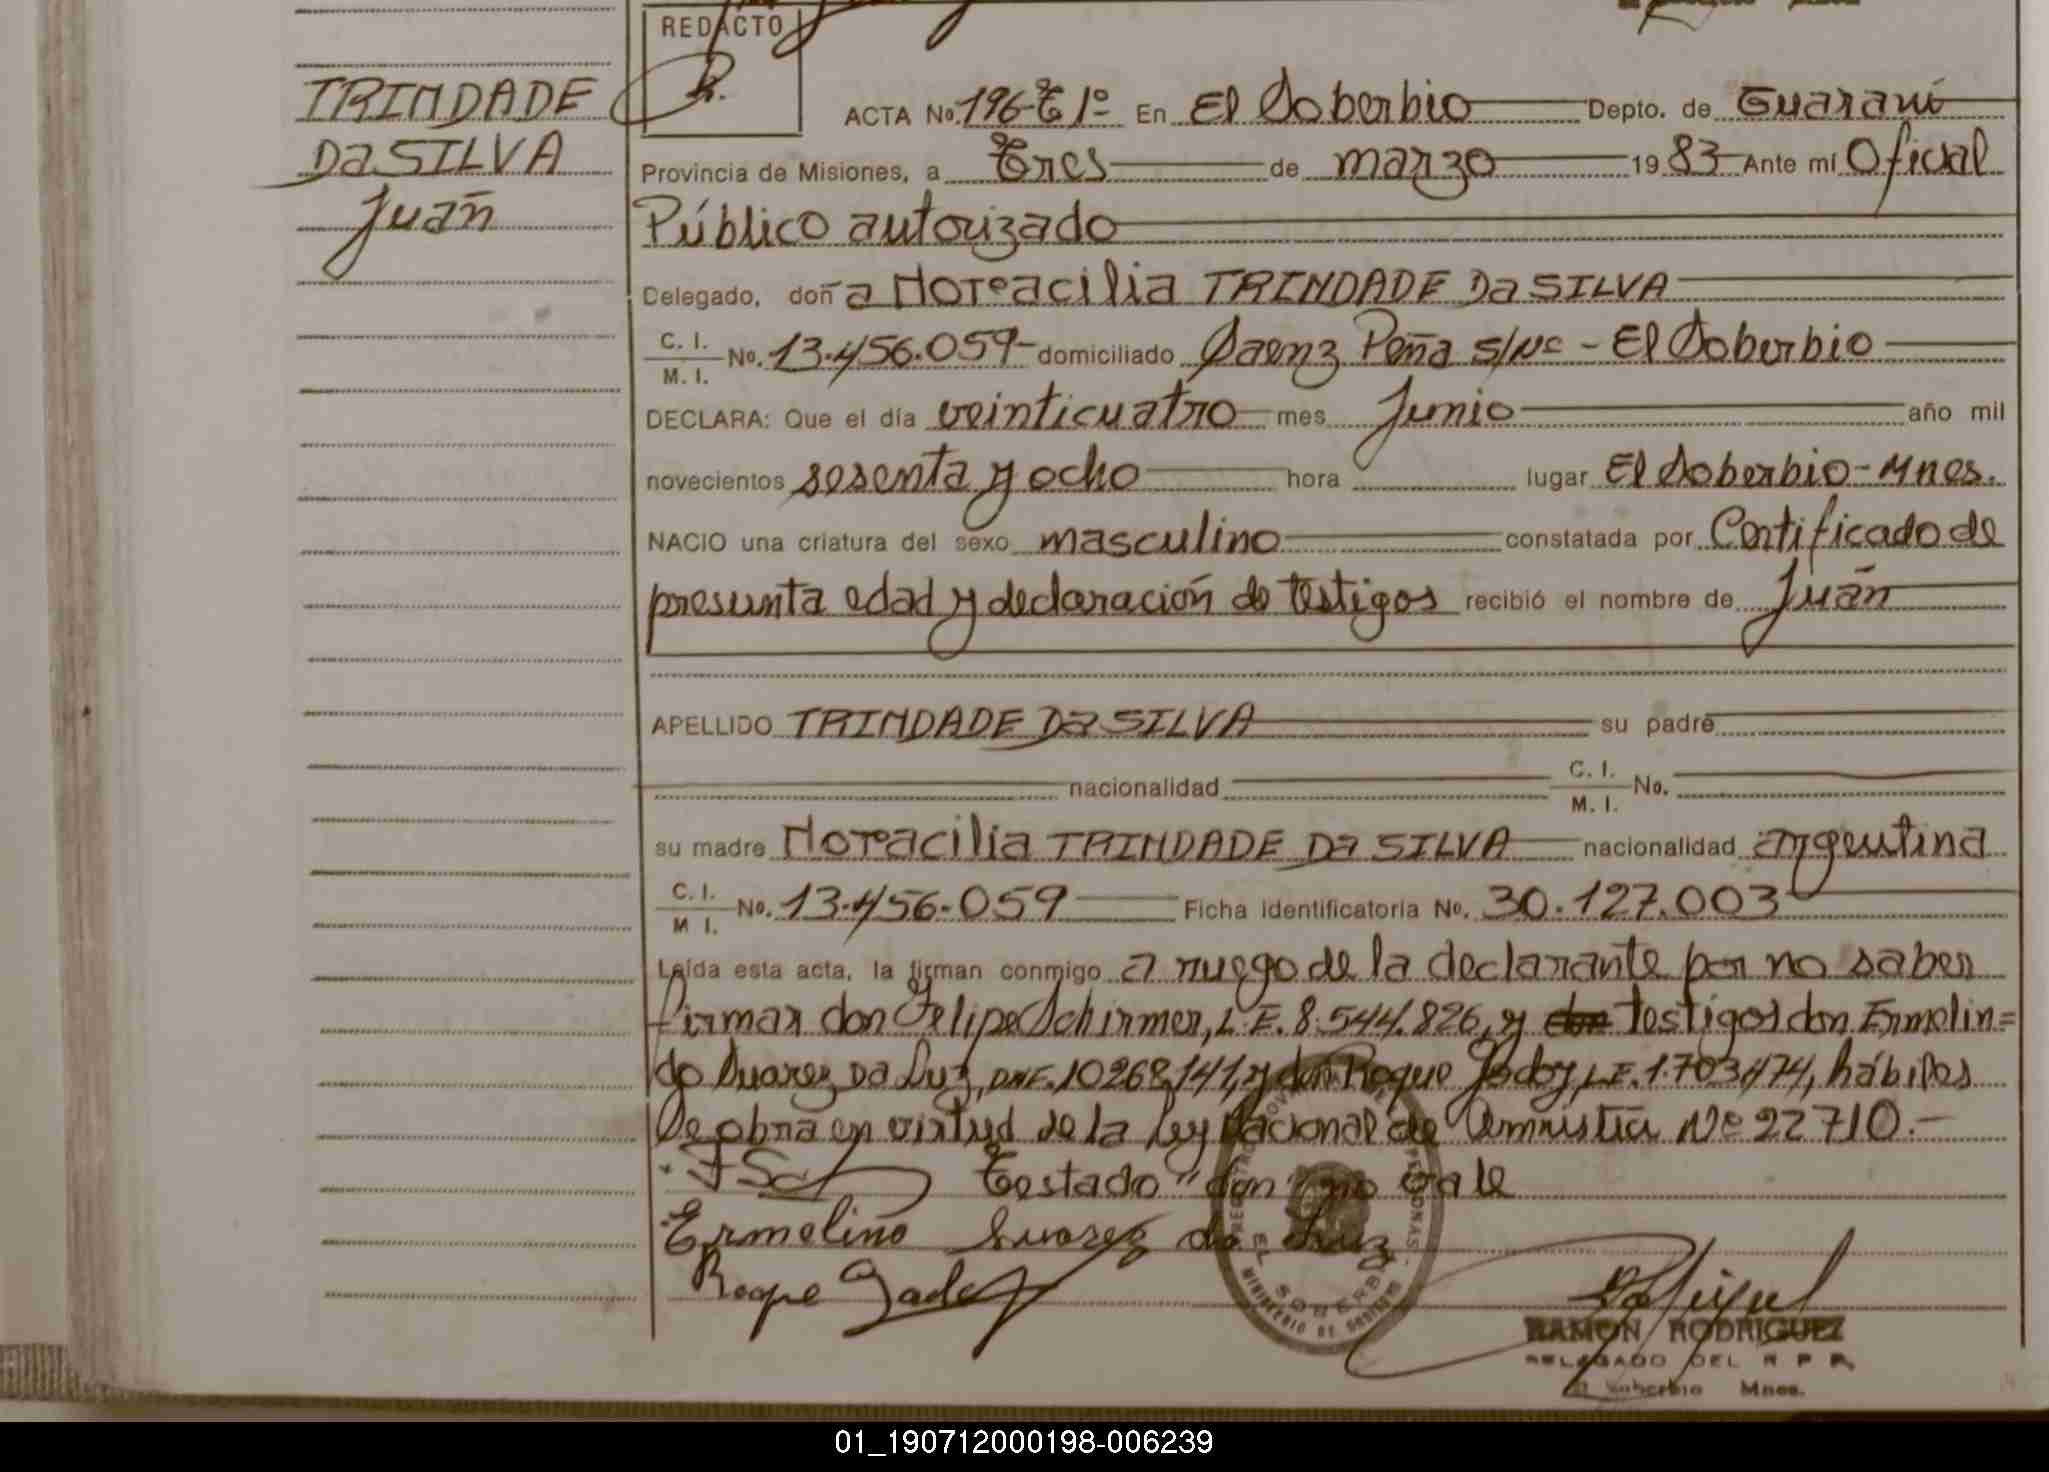 REDACTO
TRINDADE
Da SILVA
Juan
ACTA No. 196-T 1º En El Soberbio Depto. de Guaraní
Provincia de Misiones, a Tres de marzo 1983 Ante mí Oficial
Público autorizado
Delegado, doña Horacilia TRINDADE Da SILVA
C. I. M. I. No. 13.456.059- domiciliado Saenz Peña s/Nº - El Soberbio
DECLARA: Que el día veinticuatro mes Junio año mil
novecientos sesenta y ocho hora lugar El Soberbio-Mnes.
NACIO una criatura del sexo masculino constatada por Certificado de
presunta edad y declaración de testigos recibió el nombre de Juan
APELLIDO TRINDADE Da SILVA su padre
nacionalidad C. I. M. I. No.
su madre Horacilia TRINDADE Da SILVA nacionalidad argentina
C. I. M I. No. 13.456.059 Ficha identificatoria No. 30.127.003
Leída esta acta, la firman conmigo a ruego de la declarante por no saber
firmar don Felipe Schirmer, L.E. 8.544.826, y don testigos don Ermelin=
do Suarez Da Luz, DNI. 10268,141, y don Roque Godoy, L.E. 1.703.474, hábiles
De obra en virtud de la Ley Nacional de Amnistia Nº 22710.-
Testado "don" no vale
Ermelino Suarez da Luz
Roque Godoy
REGISTRO PROV. DE LAS PERSONAS
EL SOBERBIO
MINISTERIO DE GOBIERNO
RAMON RODRIGUEZ
DELEGADO DEL R P P
El Soberbio Mnes.
01_190712000198-006239